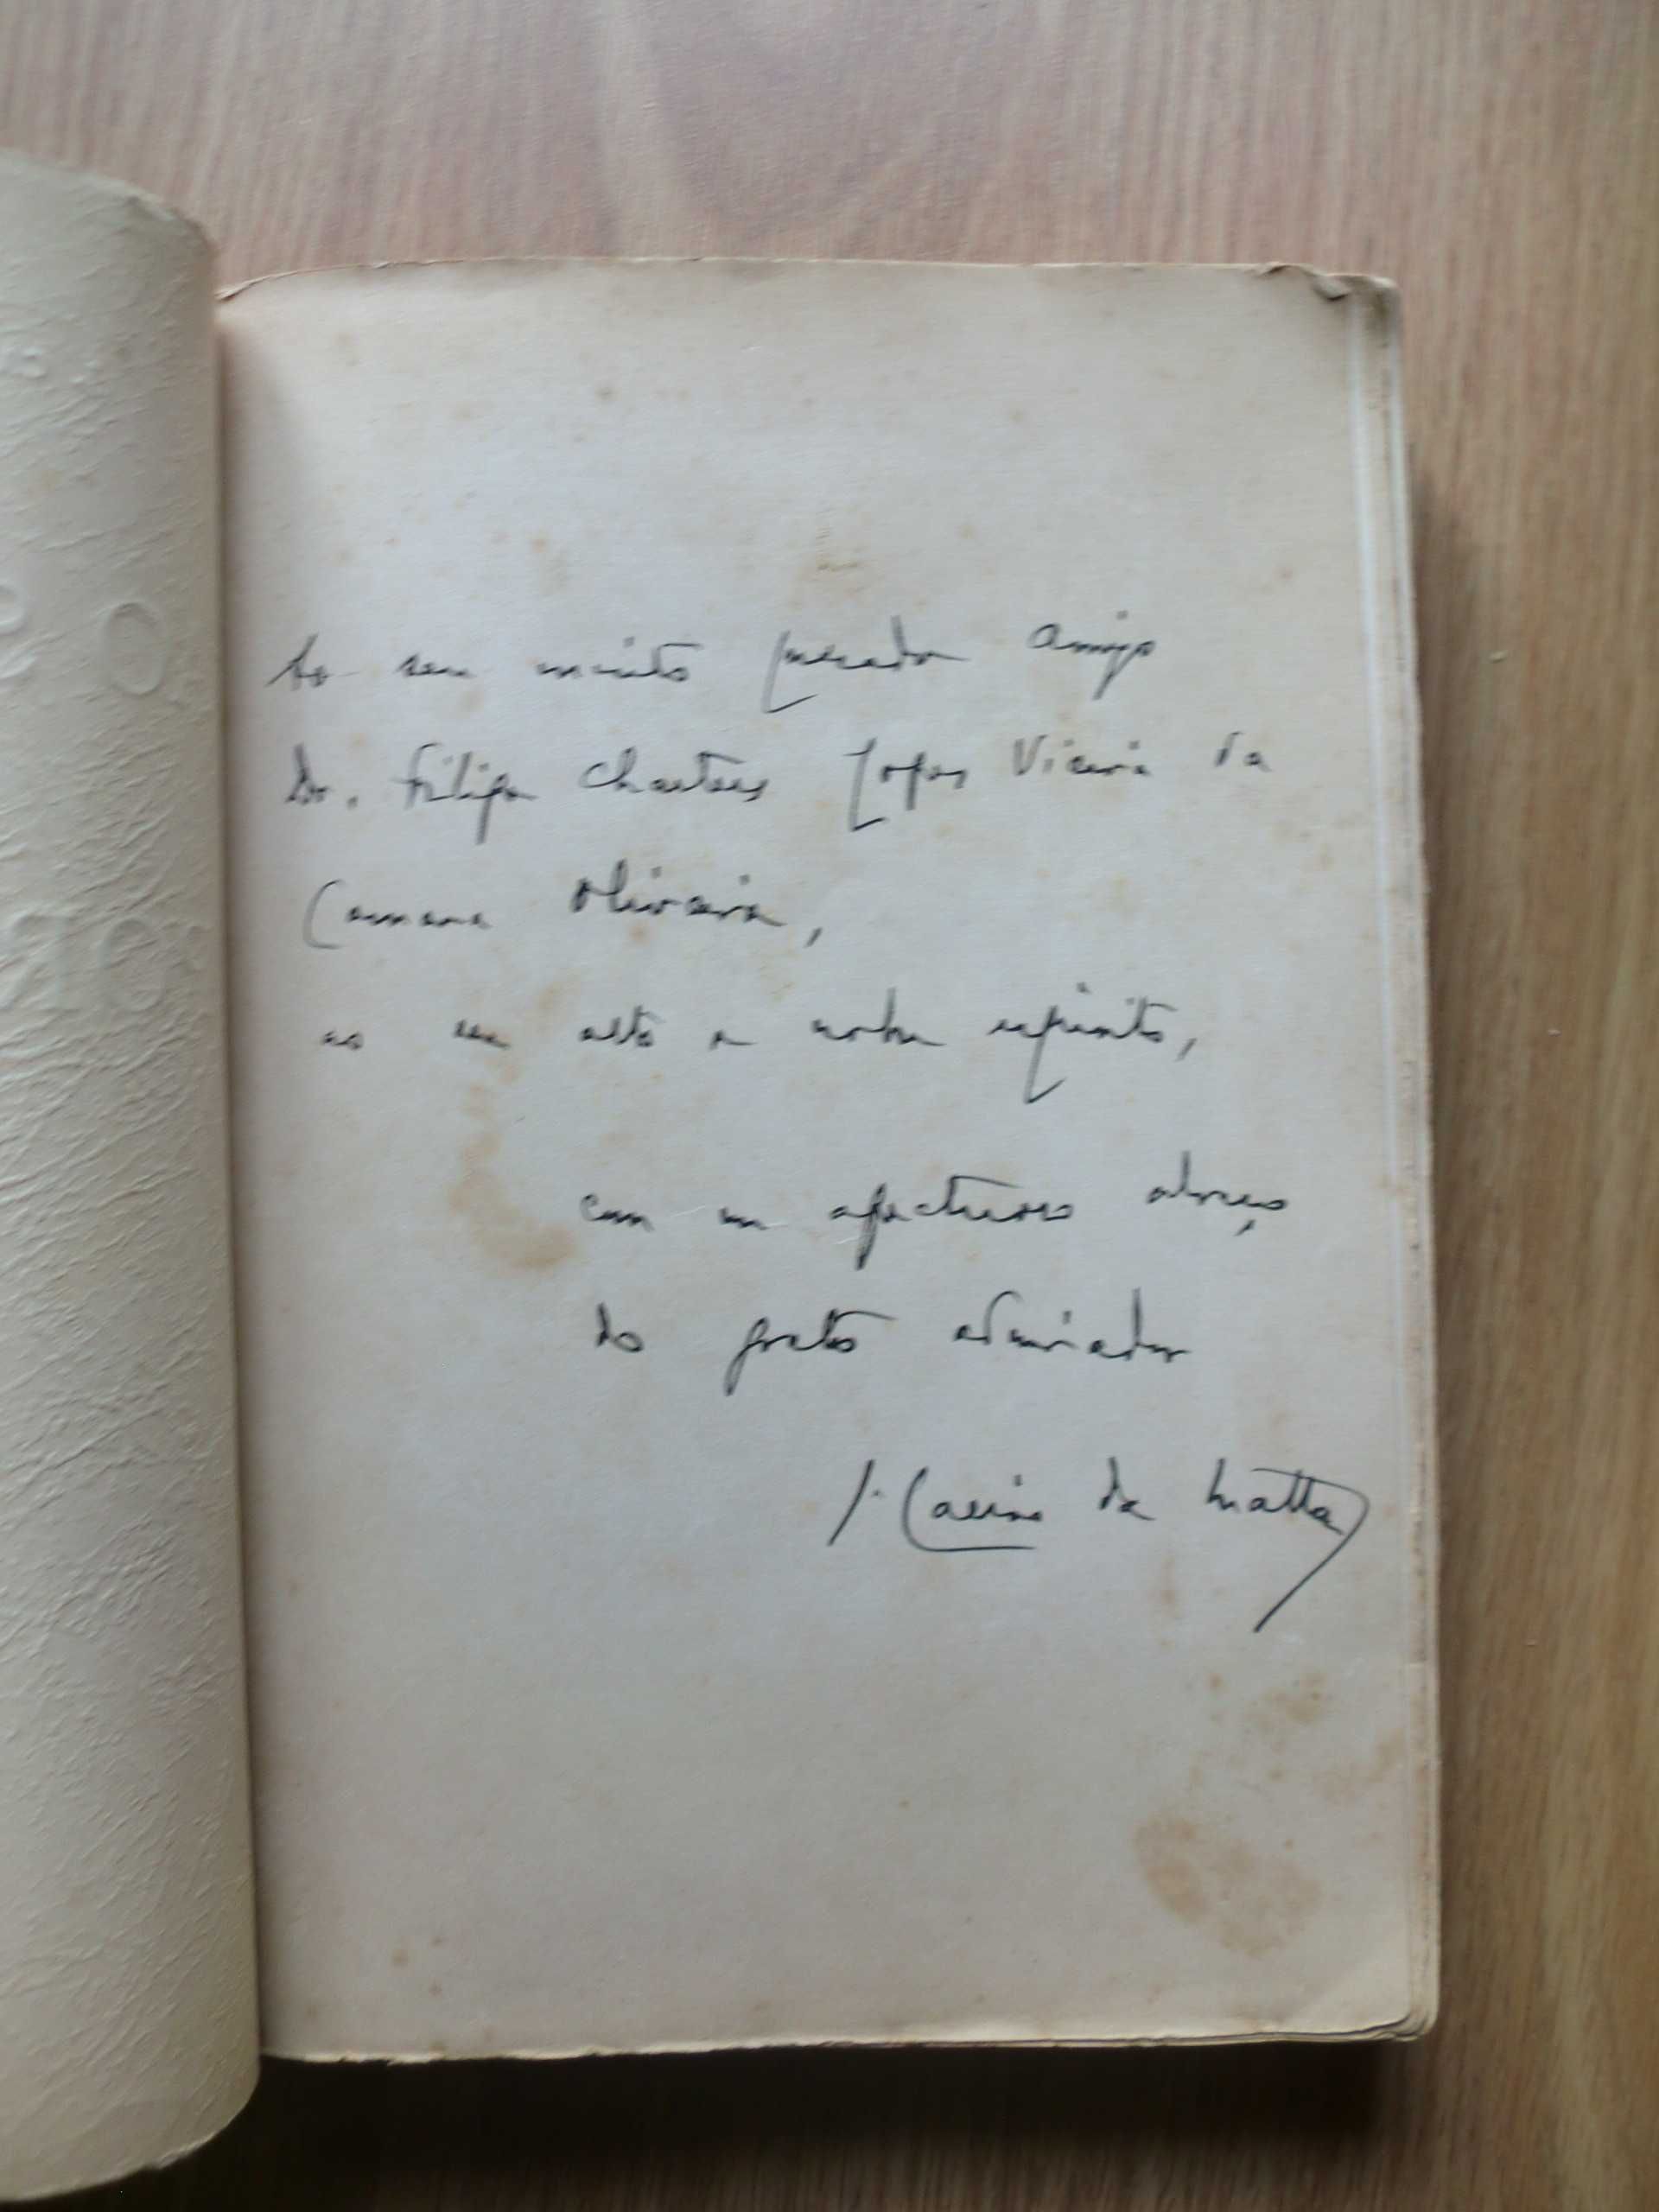 Ao seu muito querido Amigo
Dr. Filipe Charters Lopes Vieira da
Camara Oliveira,
ao seu alto e nobre espirito,
com um afectuoso abraço
do grato admirador
J. Cassiano da Matta